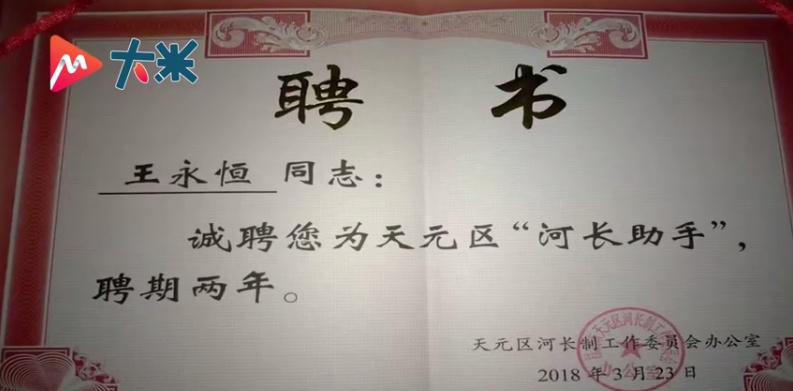 大米
聘 书
王永恒 同志：
诚聘您为天元区“河长助手”，
聘期两年。
天元区河长制工作委员会办公室
2018年3月23日